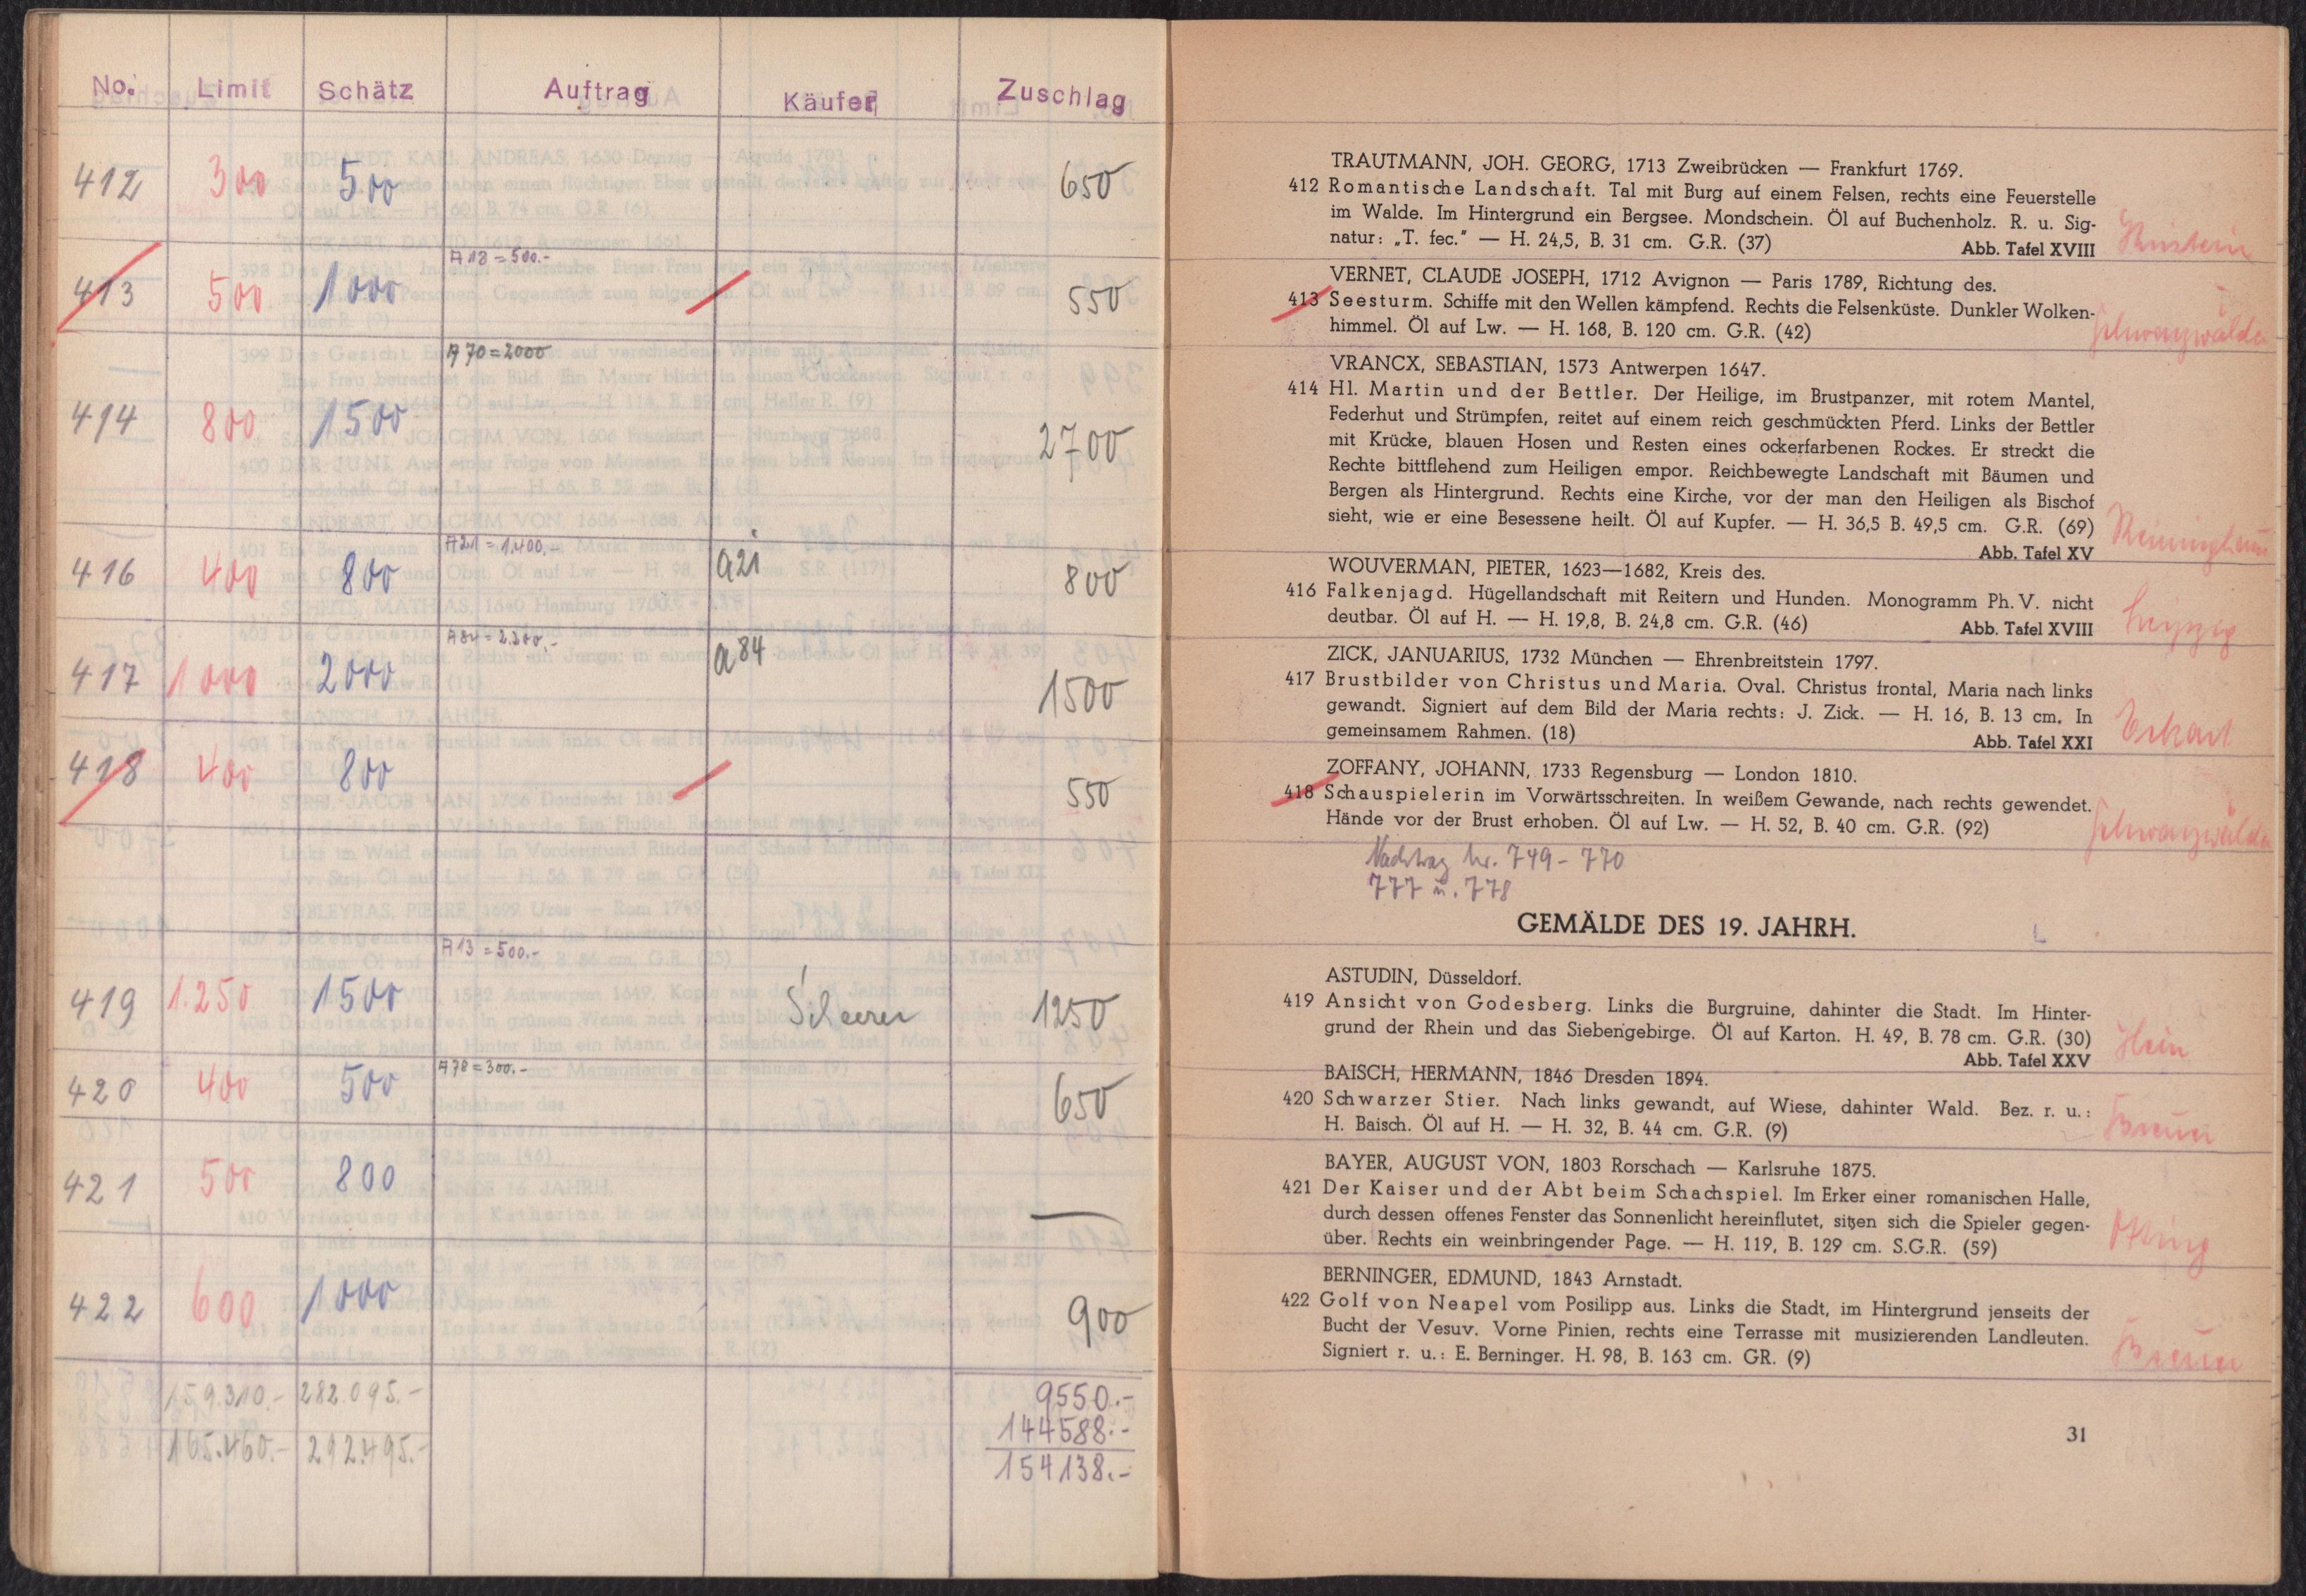 No. Limit Schätz Auftrag Käufer Zuschlag
412 300 500 650
A 18 = 500.-
413 500 1000 550
A 70 = 2000
414 800 1500 2700
A21 = 1.400.-
416 400 800 a21 800
A84 = 2.200.-
417 1000 2000 a84 1500
418 400 800 550
A13 = 500.-
419 1.250 1500 1250
A78 = 300.-
420 400 500 650
421 500 800 —
422 600 1000 900
159.310.- 282.095.- 9550.-
144588.-
165.460.- 292.495.- 154138.-
TRAUTMANN, JOH. GEORG, 1713 Zweibrücken — Frankfurt 1769.
412 Romantische Landschaft. Tal mit Burg auf einem Felsen, rechts eine Feuerstelle
im Walde. Im Hintergrund ein Bergsee. Mondschein. Öl auf Buchenholz. R. u. Sig-
natur: „T. fec.” — H. 24,5, B. 31 cm. G.R. (37) Abb. Tafel XVIII
VERNET, CLAUDE JOSEPH, 1712 Avignon — Paris 1789, Richtung des.
413 Seesturm. Schiffe mit den Wellen kämpfend. Rechts die Felsenküste. Dunkler Wolken-
himmel. Öl auf Lw. — H. 168, B. 120 cm. G.R. (42) Schwarzwälder
VRANCX, SEBASTIAN, 1573 Antwerpen 1647.
414 Hl. Martin und der Bettler. Der Heilige, im Brustpanzer, mit rotem Mantel,
Federhut und Strümpfen, reitet auf einem reich geschmückten Pferd. Links der Bettler
mit Krücke, blauen Hosen und Resten eines ockerfarbenen Rockes. Er streckt die
Rechte bittflehend zum Heiligen empor. Reichbewegte Landschaft mit Bäumen und
Bergen als Hintergrund. Rechts eine Kirche, vor der man den Heiligen als Bischof
sieht, wie er eine Besessene heilt. Öl auf Kupfer. — H. 36,5 B. 49,5 cm. G.R. (69)
Abb. Tafel XV
WOUVERMAN, PIETER, 1623—1682, Kreis des.
416 Falkenjagd. Hügellandschaft mit Reitern und Hunden. Monogramm Ph. V. nicht
deutbar. Öl auf H. — H. 19,8, B. 24,8 cm. G.R. (46) Abb. Tafel XVIII Leipzig
ZICK, JANUARIUS, 1732 München — Ehrenbreitstein 1797.
417 Brustbilder von Christus und Maria. Oval. Christus frontal, Maria nach links
gewandt. Signiert auf dem Bild der Maria rechts: J. Zick. — H. 16, B. 13 cm. In
gemeinsamem Rahmen. (18) Abb. Tafel XXI
ZOFFANY, JOHANN, 1733 Regensburg — London 1810.
418 Schauspielerin im Vorwärtsschreiten. In weißem Gewande, nach rechts gewendet.
Hände vor der Brust erhoben. Öl auf Lw. — H. 52, B. 40 cm. G.R. (92) Schwarzwälder
Nachtrag Nr. 749 - 770
777 u. 778
GEMÄLDE DES 19. JAHRH.
ASTUDIN, Düsseldorf.
419 Ansicht von Godesberg. Links die Burgruine, dahinter die Stadt. Im Hinter-
grund der Rhein und das Siebengebirge. Öl auf Karton. H. 49, B. 78 cm. G.R. (30)
Abb. Tafel XXV
BAISCH, HERMANN, 1846 Dresden 1894.
420 Schwarzer Stier. Nach links gewandt, auf Wiese, dahinter Wald. Bez. r. u.:
H. Baisch. Öl auf H. — H. 32, B. 44 cm. G.R. (9)
BAYER, AUGUST VON, 1803 Rorschach — Karlsruhe 1875.
421 Der Kaiser und der Abt beim Schachspiel. Im Erker einer romanischen Halle,
durch dessen offenes Fenster das Sonnenlicht hereinflutet, sitzen sich die Spieler gegen-
über. Rechts ein weinbringender Page. — H. 119, B. 129 cm. S.G.R. (59)
BERNINGER, EDMUND, 1843 Arnstadt.
422 Golf von Neapel vom Posilipp aus. Links die Stadt, im Hintergrund jenseits der
Bucht der Vesuv. Vorne Pinien, rechts eine Terrasse mit musizierenden Landleuten.
Signiert r. u.: E. Berninger. H. 98, B. 163 cm. GR. (9)
31